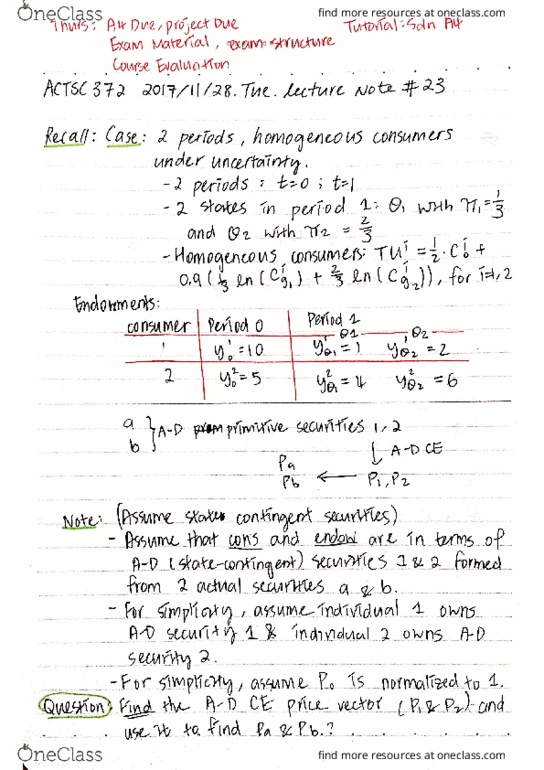 OneClass
find more resources at oneclass.com
Thurs: A4 Due, project Due
Tutorial: Soln A4
Exam Material, exam structure
Course Evaluation
ACTSC 372 2017/11/28. Tue. lecture Note #23
Recall: Case: 2 periods, homogeneous consumers
under uncertainty.
- 2 periods: t=0; t=1
- 2 states in period 1: θ₁ with π₁=1/3
and θ₂ with π₂ = 2/3
- Homogeneous consumers: TUⁱ = 1/2·C₀ⁱ +
0.9(1/3 ln(Cⁱθ₁) + 2/3 ln(Cⁱθ₂)), for i=1,2
Endowments:
consumer Period 0 Period 1
θ1 θ2
1 y₀¹=10 y¹θ₁=1 y¹θ₂=2
2 y₀²=5 y²θ₁=4 y²θ₂=6
a
b } A-D primitive securities 1, 2
↓ A-D CE
Pa
Pb ← P₁, P₂
Note: (Assume state contingent securities)
- Assume that cons and endow are in terms of
A-D (state-contingent) securities 1 & 2 formed
from 2 actual securities a & b.
- For simplicity, assume individual 1 owns
A-D security 1 & individual 2 owns A-D
security 2.
- For simplicity, assume P₀ is normalized to 1.
Question: Find the A-D CE price vector (P₁ & P₂) and
use it to find Pa & Pb.?
OneClass
find more resources at oneclass.com